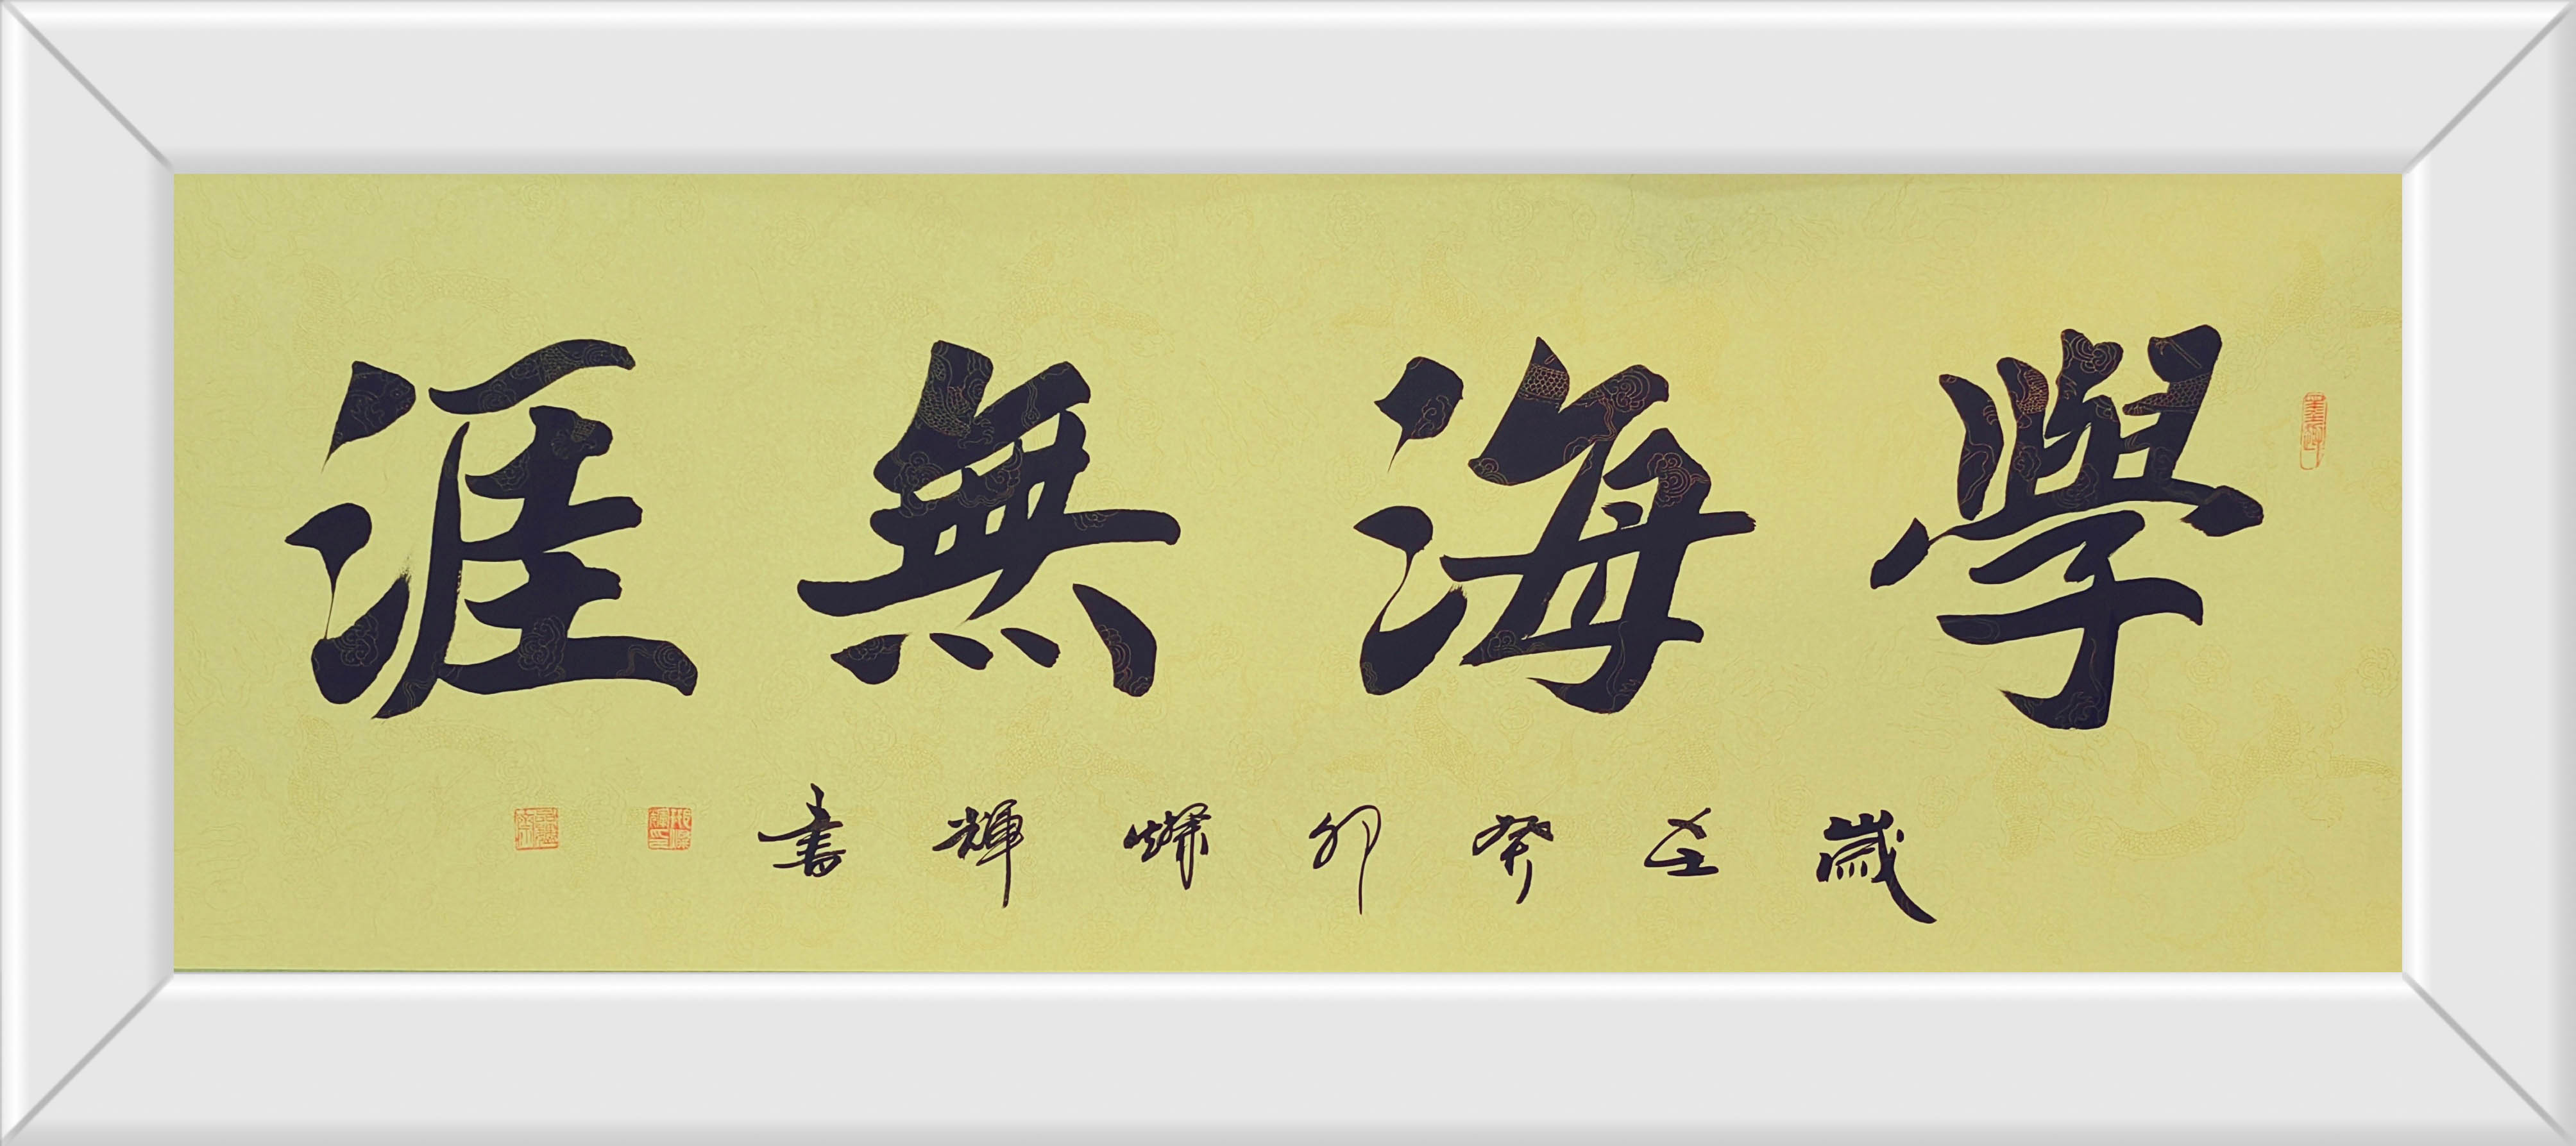 學海無涯
歲在癸卯燦輝書